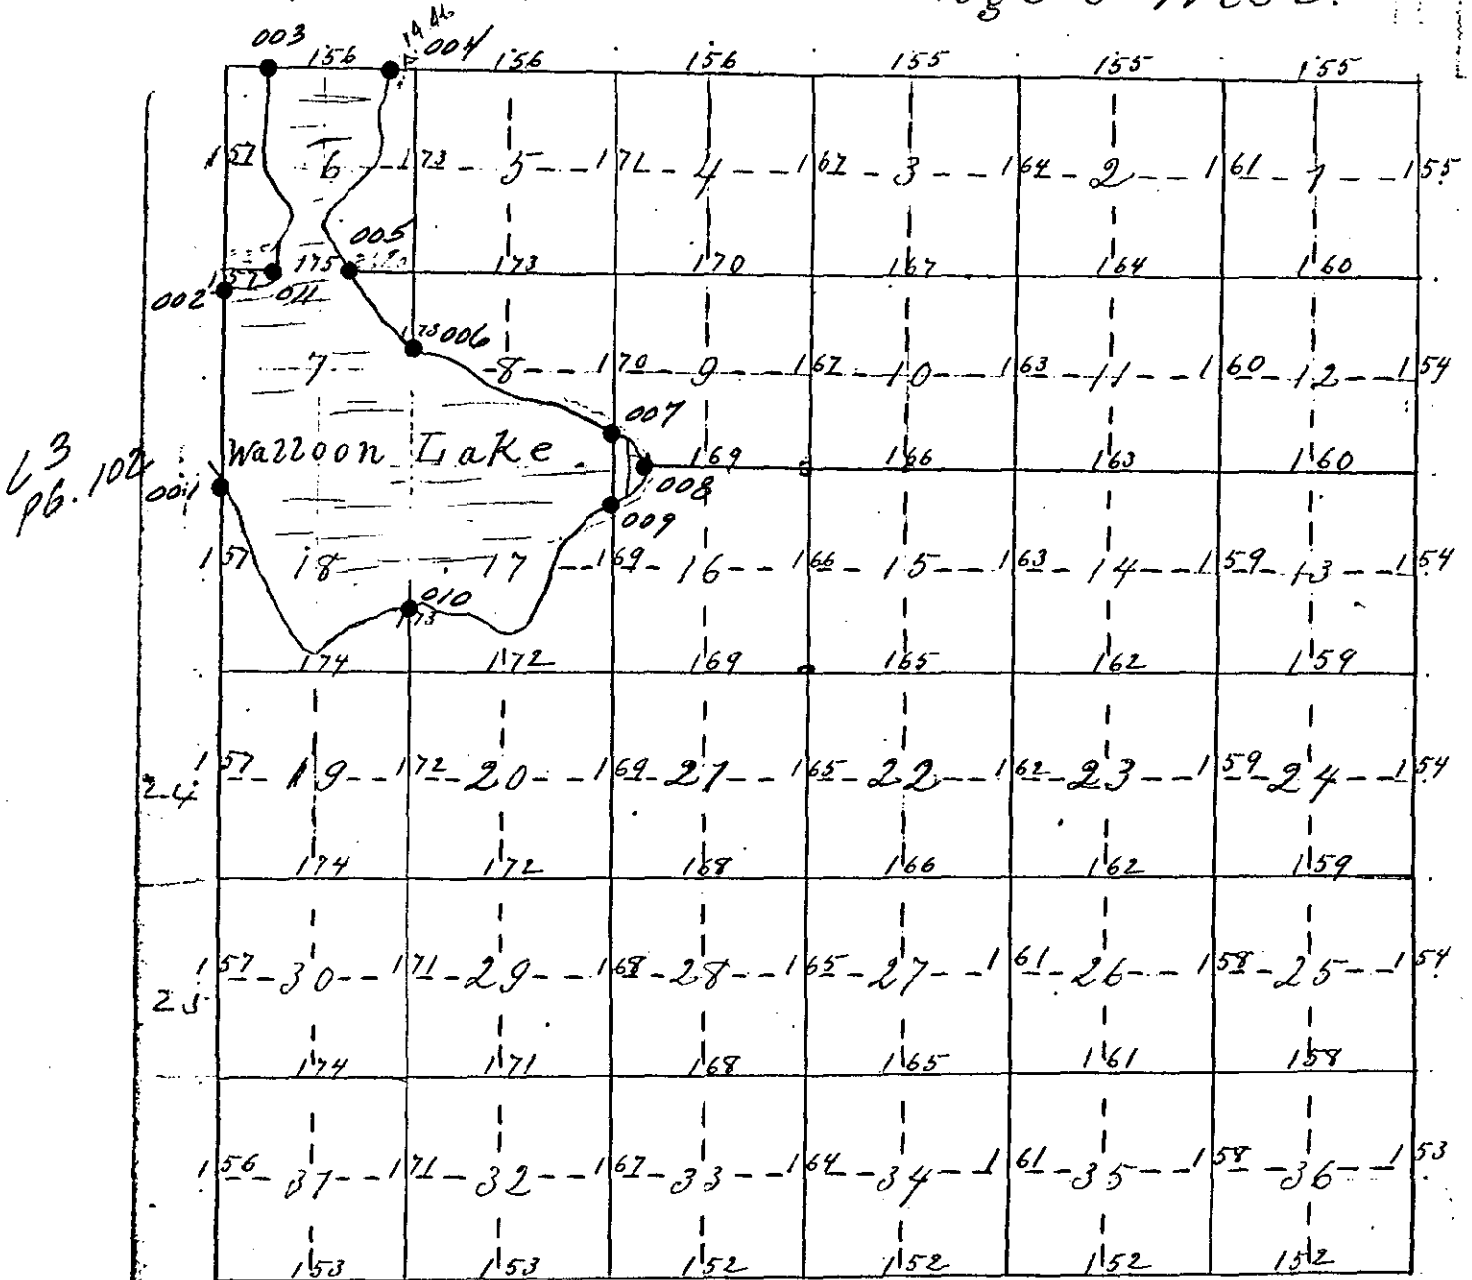 003 19.46 004
156 156 156 155 155 155
157 6 173 5 171 4 167 3 164 2 161 1 155
005
157 175 173 170 167 164 160
002 011
175 006
7 8 170 9 167 10 163 11 160 12 154
007
L3 Walloon Lake 169 166 163 160
pg. 102 001 008
009
157 18 17 169 16 166 15 163 14 159 13 154
010
173
174 172 169 165 162 159
24 157 19 172 20 169 21 165 22 162 23 159 24 154
174 172 168 166 162 159
25 157 30 171 29 168 28 165 27 161 26 158 25 154
174 171 168 165 161 158
156 31 171 32 167 33 164 34 161 35 158 36 153
153 153 152 152 152 152